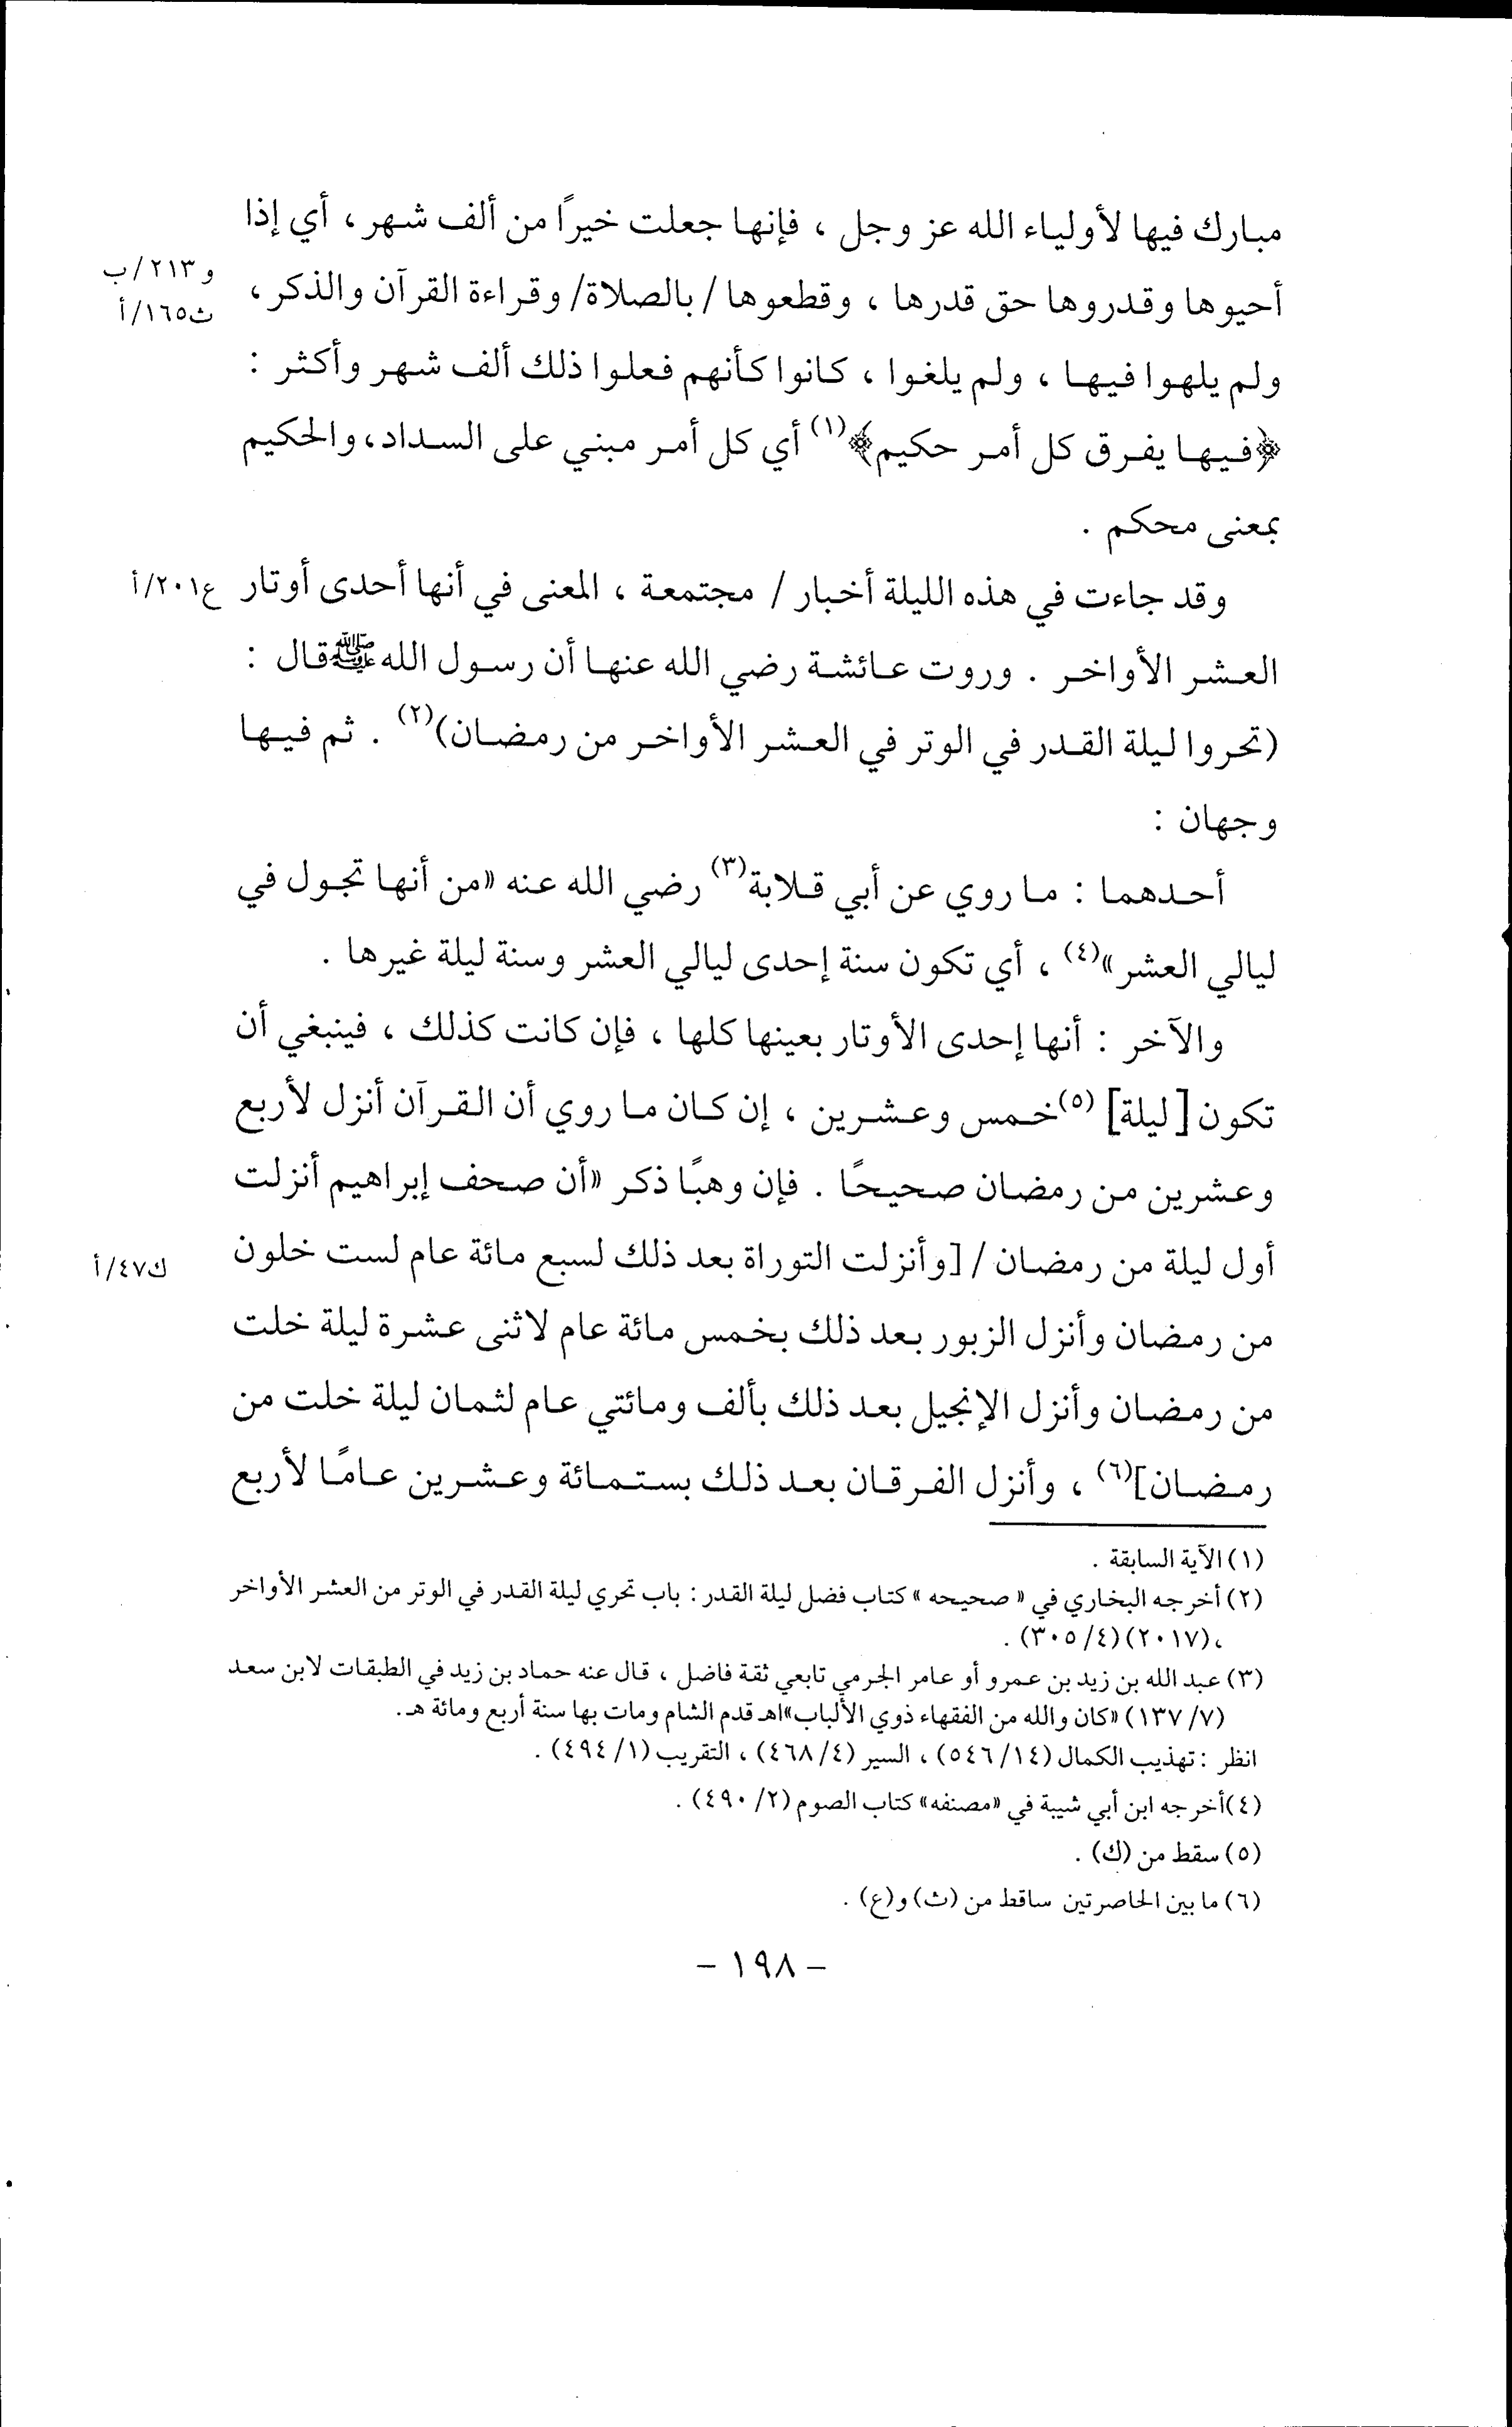 مبارك فيها لأولياء الله عز وجل ، فإنها جعلت خيرًا من ألف شهر ، أي إذا
أحيوها وقدروها حق قدرها ، وقطعوها / بالصلاة/ وقراءة القرآن والذكر ،
و٢١٣/ب
ث١٦٥/أ
ولم يلهوا فيها ، ولم يلغوا ، كانوا كأنهم فعلوا ذلك ألف شهر وأكثر :
﴿فيها يفرق كل أمر حكيم﴾(١) أي كل أمر مبني على السداد، والحكيم
بمعنى محكم .
وقد جاءت في هذه الليلة أخبار / مجتمعة ، المعنى في أنها أحدى أوتار
ع٢٠١/أ
العشر الأواخر . وروت عائشة رضي الله عنها أن رسول الله ﷺ قال :
(تحروا ليلة القدر في الوتر في العشر الأواخر من رمضان)(٢) . ثم فيها
وجهان :
أحدهما : ما روي عن أبي قلابة(٣) رضي الله عنه «من أنها تجول في
ليالي العشر»(٤) ، أي تكون سنة إحدى ليالي العشر وسنة ليلة غيرها .
والآخر : أنها إحدى الأوتار بعينها كلها ، فإن كانت كذلك ، فينبغي أن
تكون [ليلة] (٥)خمس وعشرين ، إن كان ما روي أن القرآن أنزل لأربع
وعشرين من رمضان صحيحًا . فإن وهبًا ذكر «أن صحف إبراهيم أنزلت
أول ليلة من رمضان / [وأنزلت التوراة بعد ذلك لسبع مائة عام لست خلون
ك٤٧/أ
من رمضان وأنزل الزبور بعد ذلك بخمس مائة عام لاثنى عشرة ليلة خلت
من رمضان وأنزل الإنجيل بعد ذلك بألف ومائتي عام لثمان ليلة خلت من
رمضان](٦) ، وأنزل الفرقان بعد ذلك بستمائة وعشرين عامًا لأربع
(١) الآية السابقة .
(٢) أخرجه البخاري في « صحيحه » كتاب فضل ليلة القدر : باب تحري ليلة القدر في الوتر من العشر الأواخر
، (٢٠١٧) (٣٠٥/٤) .
(٣) عبد الله بن زيد بن عمرو أو عامر الجرمي تابعي ثقة فاضل ، قال عنه حماد بن زيد في الطبقات لابن سعد
(١٣٧/٧) «كان والله من الفقهاء ذوي الألباب»اهـ قدم الشام ومات بها سنة أربع ومائة هـ .
انظر : تهذيب الكمال (٥٤٦/١٤) ، السير (٤٦٨/٤) ، التقريب (٤٩٤/١) .
(٤)أخرجه ابن أبي شيبة في «مصنفه» كتاب الصوم (٤٩٠/٢) .
(٥) سقط من (ك) .
(٦) ما بين الحاصرتين ساقط من (ث) و(ع) .
- ١٩٨ -